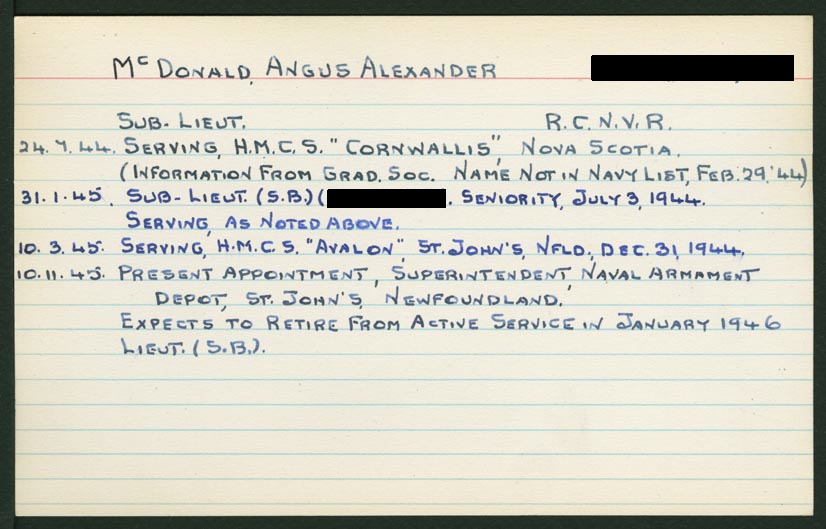 McDONALD, ANGUS ALEXANDER
SUB-LIEUT. R.C.N.V.R.
24.7.44. SERVING, H.M.C.S. "CORNWALLIS", NOVA SCOTIA.
(INFORMATION FROM GRAD. SOC. NAME NOT IN NAVY LIST, FEB. 29, '44)
31.1.45. SUB-LIEUT. (S.B.) ( . SENIORITY, JULY 3, 1944.
SERVING, AS NOTED ABOVE.
10.3.45. SERVING, H.M.C.S. "AVALON", ST. JOHN'S, NFLD., DEC. 31, 1944.
10.11.45. PRESENT APPOINTMENT, SUPERINTENDENT, NAVAL ARMAMENT
DEPOT, ST. JOHN'S, NEWFOUNDLAND.
EXPECTS TO RETIRE FROM ACTIVE SERVICE IN JANUARY 1946
LIEUT. (S.B.).